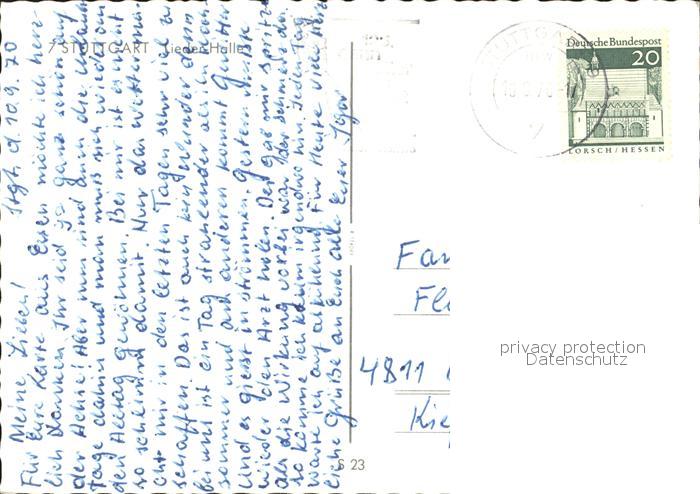 7 STUTTGART Lieder Halle
Stgt. d. 10.9.70
Meine Lieben!
Für Eure Karte aus Essen möchte ich herz-
lich danken. Ihr seid ja ganz schön auf
der Achse! Aber nun sind auch die Urlaubs-
tage dahin und man muss sich wieder vom
den Alltag gewöhnen. Bei mir ist es nicht
so schlimm damit. Nur das Wetter macht
mir in den letzten Tagen sehr viel zu
schaffen. Das ist auch kein Wunder denn
bei uns ist ein Tag strahlender als ich im
sommer und am anderen kommt
und es giesst in strömen. Gestern musste
wieder den Arzt holen. Der gab mir spritze
als die Wirkung vorbei war der schmerz da
so komme ich kaum irgendwo hin. Jeden Tag
warte ich auf abkühlung. Für Heute viele herz-
liche Grüße an Euch alle Eure
Deutsche Bundespost
20
LORSCH/HESSEN
STUTTGART
7
Fa
Fl
4811
Kie
privacy protection
Datenschutz
S 23